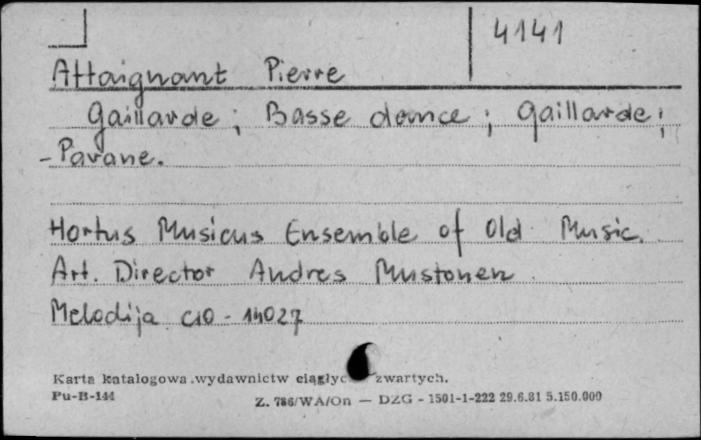 4141
Attaignant Pierre
Gaillarde; Basse dance; Gaillarde;
-Pavane.
Hortus Musicus Ensemble of Old Music.
Art. Director Andres Mustonen
Melodija C10-14027
Karta katalogowa wydawnictw ciągłyc zwartych.
Pu-B-144
Z. 786/WA/On — DZG - 1501-1-222 29.6.81 5.150.000